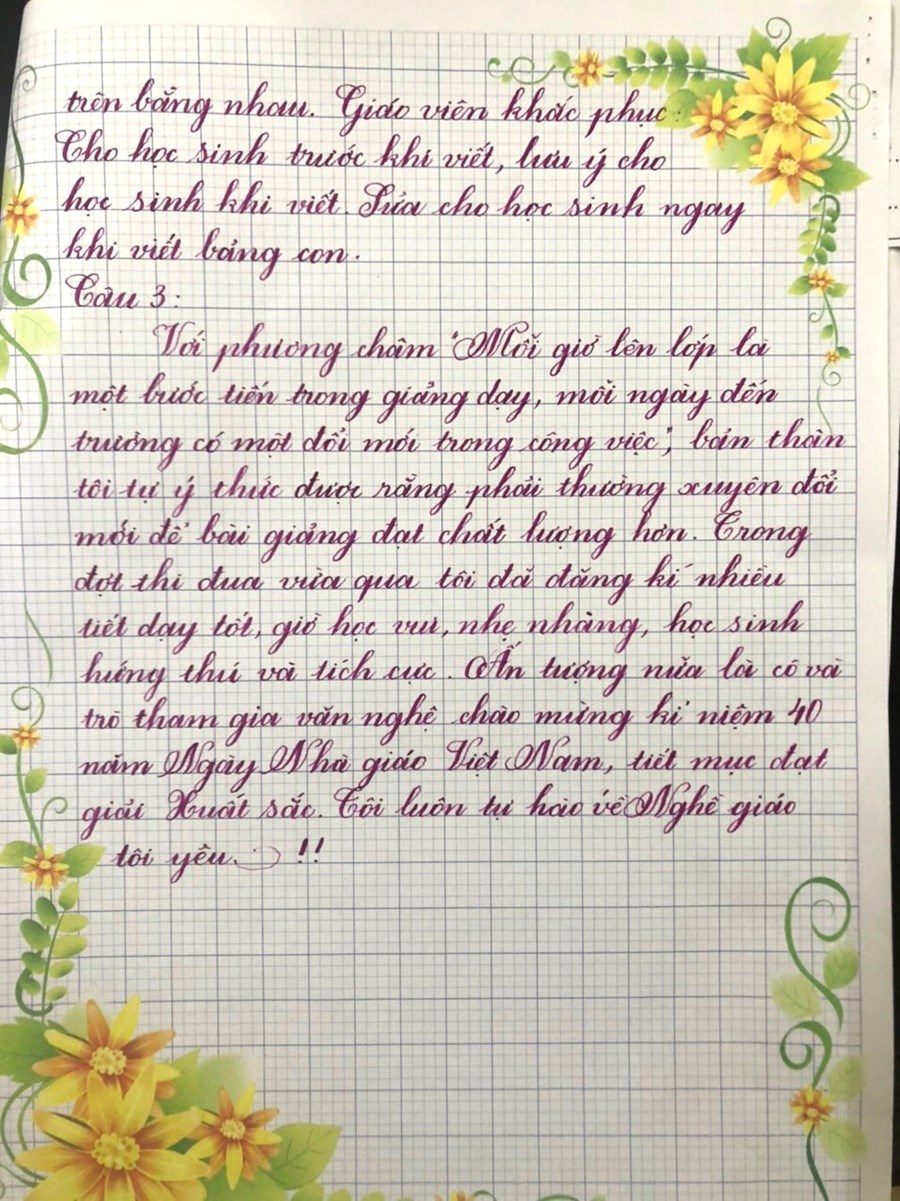 trên bảng nhau. Giáo viên khắc phục:
Cho học sinh trước khi viết, lưu ý cho
học sinh khi viết. Sửa cho học sinh ngay
khi viết bảng con.
Câu 3:
Với phương châm "Mỗi giờ lên lớp là
một bước tiến trong giảng dạy, mỗi ngày đến
trường có một đổi mới trong công việc", bản thân
tôi tự ý thức được rằng phải thường xuyên đổi
mới để bài giảng đạt chất lượng hơn. Trong
đợt thi đua vừa qua tôi đã đăng kí nhiều
tiết dạy tốt, giờ học vui, nhẹ nhàng, học sinh
hứng thú và tích cực. Ấn tượng nữa là cô và
trò tham gia văn nghệ chào mừng kỉ niệm 40
năm Ngày Nhà giáo Việt Nam, tiết mục đạt
giải Xuất sắc. Tôi luôn tự hào về Nghề giáo
tôi yêu. :) !!